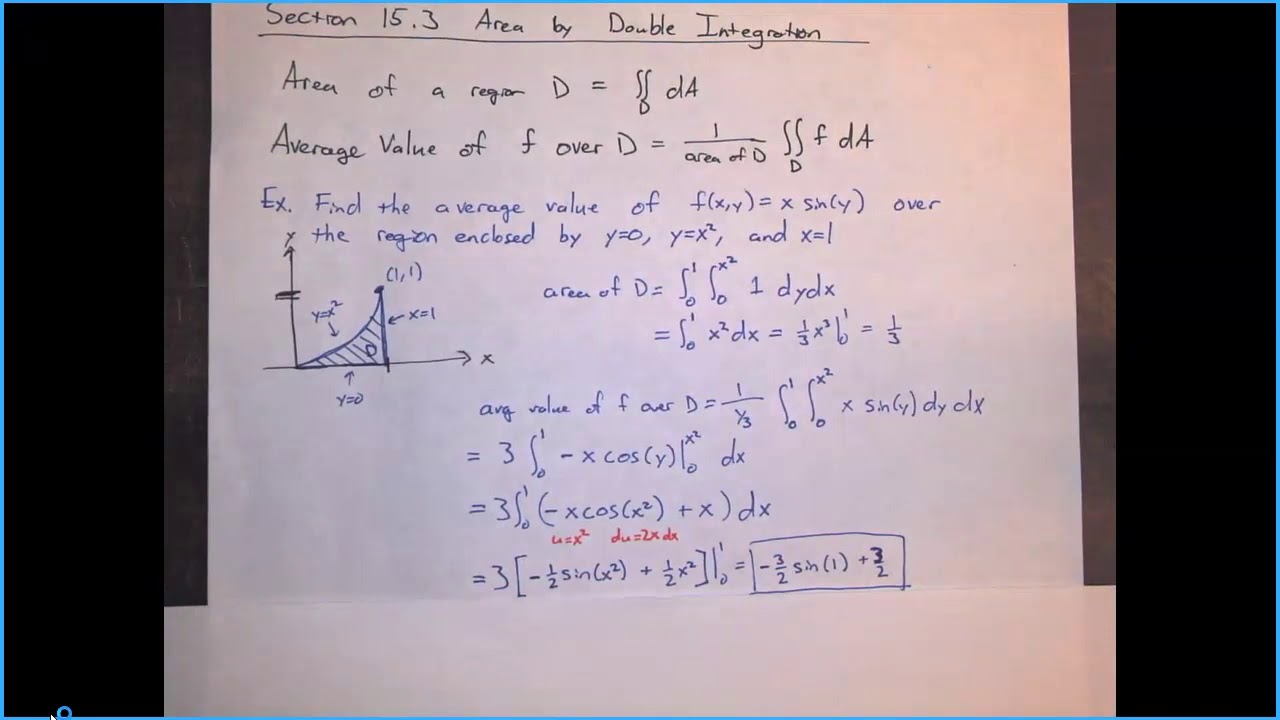 Section 15.3 Area by Double Integration
Area of a region D = ∬_D dA
Average Value of f over D = 1/(area of D) ∬_D f dA
Ex. Find the average value of f(x,y) = x sin(y) over
the region enclosed by y=0, y=x², and x=1
y
(1,1)
y=x²
x=1
D
x
y=0
area of D = ∫₀¹ ∫₀^(x²) 1 dy dx
= ∫₀¹ x² dx = 1/3 x³ |₀¹ = 1/3
avg value of f over D = 1/(1/3) ∫₀¹ ∫₀^(x²) x sin(y) dy dx
= 3 ∫₀¹ -x cos(y) |₀^(x²) dx
= 3 ∫₀¹ (-x cos(x²) + x) dx
u=x² du=2x dx
= 3 [-1/2 sin(x²) + 1/2 x²] |₀¹ = -3/2 sin(1) + 3/2